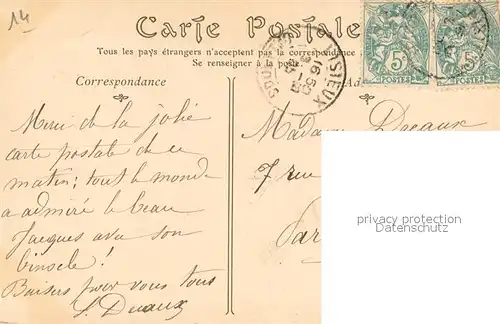 14
Carte Postale
Tous les pays étrangers n'acceptent pas la correspondance
Se renseigner à la poste.
LISIEUX
16 50
5
POSTES
5
POSTES
Correspondance
Merci de la jolie
carte postale de ce
matin; tout le monde
a admiré le beau
Jacques avec son
binocle!
Baisers pour vous tous
S. Dreaux
Madame Dreaux
7 rue
Par
privacy protection
Datenschutz